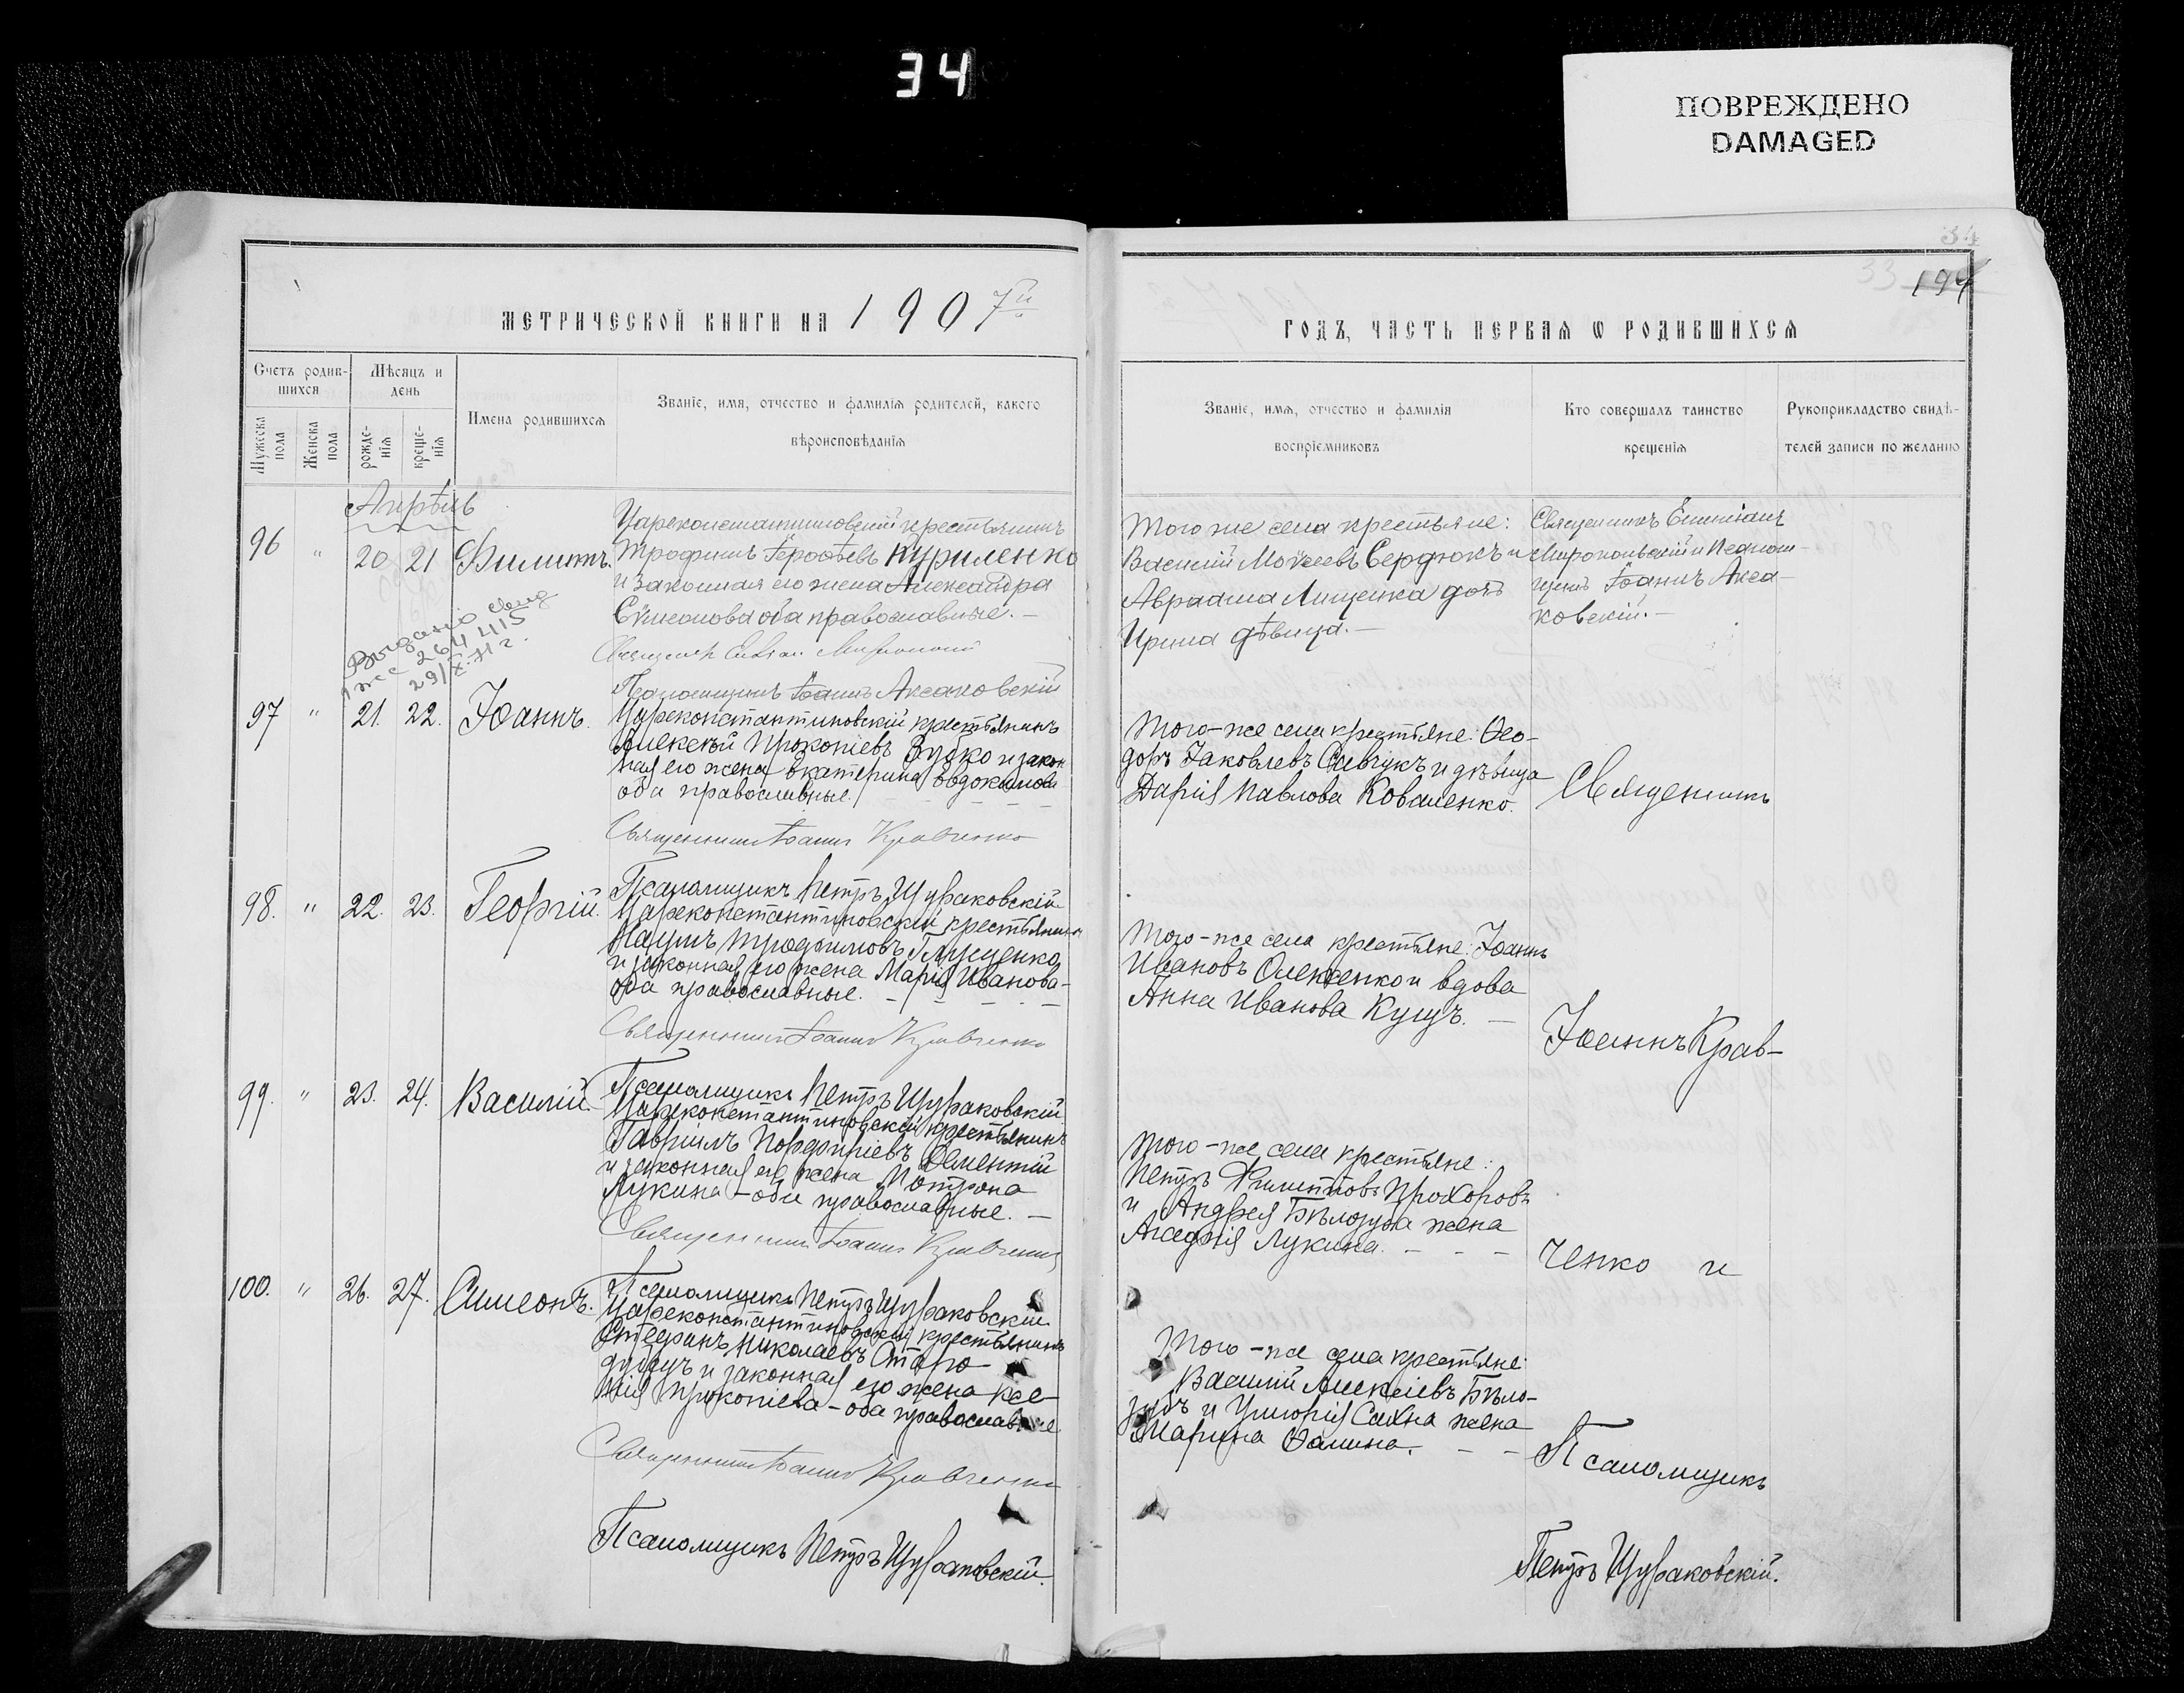 34
ПОВРЕЖДЕНО
DAMAGED
34
33
194
МЕТРИЧЕСКОЙ КНИГИ НА 1907й
ГОДЪ, ЧАСТЬ ПЕРВАЯ Ѡ РОДИВШИХСЯ
Счетъ родив-
шихся
Мѣсяцъ и
день
Мужеска
пола
Женска
пола
рожде-
нія
креще-
нія
Имена родившихся
Званіе, имя, отчество и фамилія родителей, какого
вѣроисповѣданія
Званіе, имя, отчество и фамилія
воспріемниковъ
Кто совершалъ таинство
крещенія
Рукоприкладство свидѣ-
телей записи по желанію
Апрѣль
96 " 20 21 Филиппъ.
Цареконстантиновскій крестьянинъ
Трофимъ Куриленко
и законная его жена Александра
Симеонова оба православные. —
Того же села крестьяне:
Василій Моѵсеевъ Сердюкъ и
Авраама Лищенка дочь
Ирина дѣвица. —
Священникъ
Миропольскій и Псалом-
щикъ Іоаннъ Акса-
ковскій. —
Выдано свид
264415
29/X-71 г.
Псаломщикъ Іоаннъ Аксаковскій
97 " 21. 22. Іоаннъ.
Цареконстантиновскій крестьянинъ
Алексѣй Прокопіевъ Зубко и закон-
ная его жена Екатерина Евдокимова
оба православные.
Того-же села крестьяне: Ѳео-
доръ Іаковлевъ Савчукъ и дѣвица
Дарія Павлова Коваленко.
Священникъ
Священникъ Іоаннъ Кравченко
Псаломщикъ Петръ Щураковскій
98. " 22. 23. Георгій.
Цареконстантиновскій крестьянинъ
Наумъ Трофимовъ Глущенко
и законная его жена Марія Иванова-
оба православные.
Того-же села крестьяне: Іоаннъ
Ивановъ Олексенко и вдова
Анна Иванова Кущъ. —
Іоаннъ Крав-
Священникъ Іоаннъ Кравченко
Псаломщикъ Петръ Щураковскій
99. " 23. 24. Василій.
Цареконстантиновскій крестьянинъ
Гавріилъ Порфиріевъ
и законная его жена Матрона
Лукина - оба православные. —
Того-же села крестьяне:
Петръ Филипповъ Прохоровъ
и Андрея Бѣлозуба жена
Лукина.
ченко и
Священникъ Іоаннъ Кравченко
Псаломщикъ Петръ Щураковскій
100. " 26. 27. Симеонъ.
Цареконстантиновскій крестьянинъ
Стефанъ Николаевъ Старо-
дубецъ и законная его жена Ксе-
нія Прокопіева - оба православные
Того-же села крестьяне:
Василій Алексіевъ Бѣло-
зубъ и Григорія Сахна жена
Марина
Псаломщикъ
Священникъ Іоаннъ Кравченко
Псаломщикъ Петръ Щураковскій.
Петръ Щураковскій.